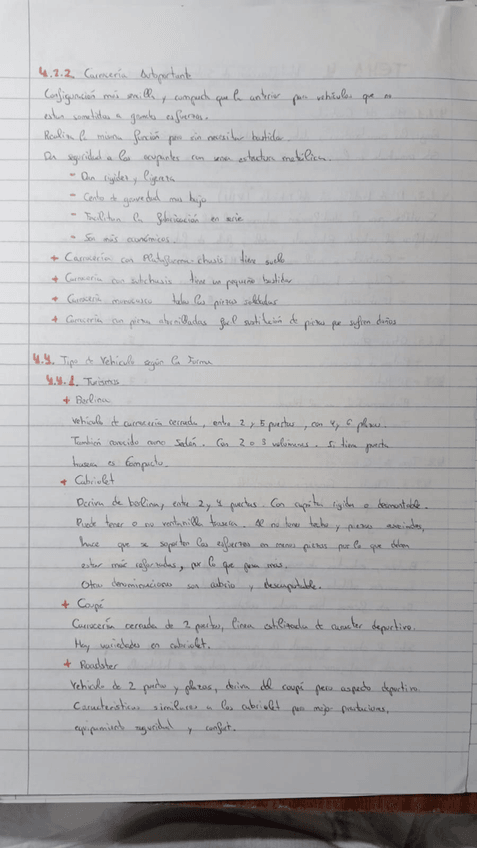 4.2.2. Carrocería Autoportante
Configuración más sencilla y compacta que la anterior para vehículos que no
estan sometidos a grandes esfuerzos.
Realiza la misma función pero sin necesitar bastidor.
Da seguridad a los ocupantes con una estructura metálica.
- Dan rigidez y ligereza
- Centro de gravedad mas bajo
- Facilitan la fabricación en serie
- Son más económicos.
+ Carrocería con Plataforma-chasis tiene suelo
+ Carrocería con subchasis tiene un pequeño bastidor
+ Carrocería monocasco todas las piezas soldadas
+ Carrocería con piezas atornilladas fácil sustitución de piezas que sufren daños
4.4. Tipo de Vehículo según la Forma
4.4.1. Turismos
+ Berlina
Vehículo de carrocería cerrada, entre 2 y 5 puertas, con 4 y 6 plazas.
También conocido como Sedán. Con 2 o 3 volúmenes. Si tiene puerta
trasera es Compacto.
+ Cabriolet
Deriva de berlina, entre 2 y 4 puertas. Con capota rígida o desmontable.
Puede tener o no ventanilla trasera. Al no tener techo y piezas asociadas,
hace que se soporten los esfuerzos en menos piezas por lo que deben
estar más reforzadas, por lo que pesa mas.
Otras denominaciones son cabrio y descapotable.
+ Coupé
Carrocería cerrada de 2 puertas, línea estilizada de caracter deportivo.
Hay variedades en cabriolet.
+ Roadster
Vehículo de 2 puertas y plazas, deriva del coupé pero aspecto deportivo.
Características similares a los cabriolet pero mejor prestaciones,
equipamiento seguridad y confort.